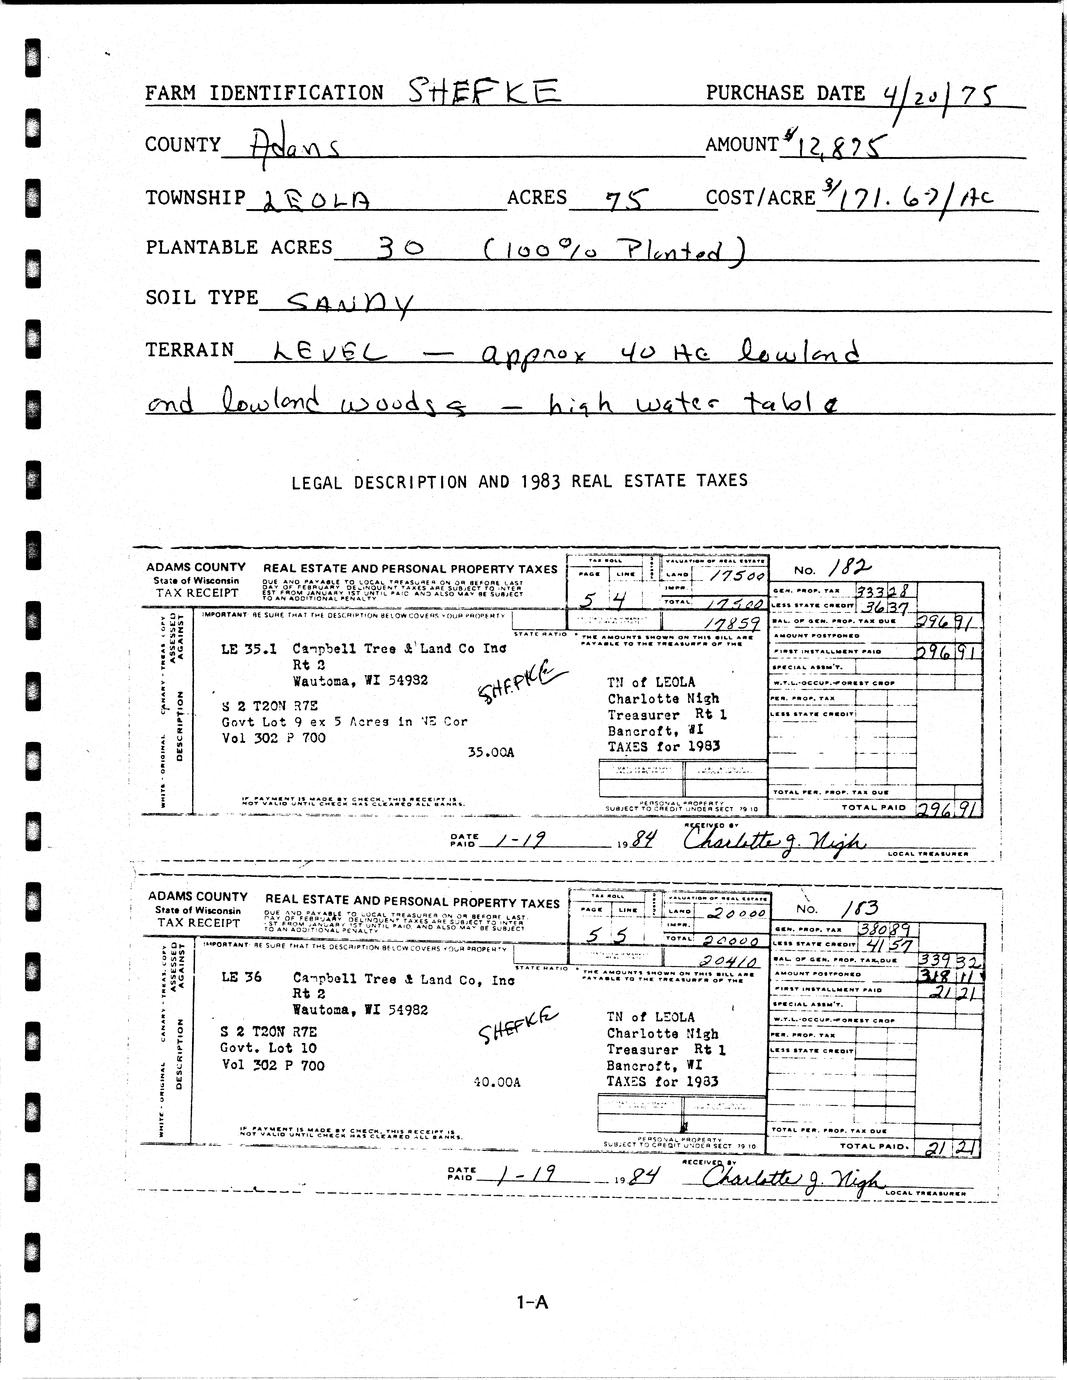 FARM IDENTIFICATION SHEFKE PURCHASE DATE 4/20/75
COUNTY Adams AMOUNT $12,875
TOWNSHIP LEOLA ACRES 75 COST/ACRE $/171.67/AC
PLANTABLE ACRES 30 (100% Planted)
SOIL TYPE SANDY
TERRAIN LEVEL — approx 40 AC lowland
and lowland woods — high water table
LEGAL DESCRIPTION AND 1983 REAL ESTATE TAXES
ADAMS COUNTY
State of Wisconsin
TAX RECEIPT
REAL ESTATE AND PERSONAL PROPERTY TAXES
DUE AND PAYABLE TO LOCAL TREASURER ON OR BEFORE LAST
DAY OF FEBRUARY DELINQUENT TAXES ARE SUBJECT TO INTER
EST FROM JANUARY 1ST UNTIL PAID AND ALSO MAY BE SUBJECT
TO AN ADDITIONAL PENALTY
TAX ROLL
PAGE LINE
5 4
VALUATION OF REAL ESTATE
LAND 17500
IMPR.
TOTAL 17500
17859
No. 182
IMPORTANT BE SURE THAT THE DESCRIPTION BELOW COVERS YOUR PROPERTY
STATE RATIO
* THE AMOUNTS SHOWN ON THIS BILL ARE
PAYABLE TO THE TREASURER OF THE
WHITE - ORIGINAL CANARY - TREAS COPY
DESCRIPTION
ASSESSED
AGAINST
LE 35.1 Campbell Tree & Land Co Inc
Rt 2
Wautoma, WI 54982
SHEFKE
S 2 T20N R7E
Govt Lot 9 ex 5 Acres in NE Cor
Vol 302 P 700
35.00A
TN of LEOLA
Charlotte Nigh
Treasurer Rt 1
Bancroft, WI
TAXES for 1983
GEN. PROP. TAX 333 28
LESS STATE CREDIT 36 37
BAL. OF GEN. PROP. TAX DUE 296 91
AMOUNT POSTPONED
FIRST INSTALLMENT PAID 296 91
SPECIAL ASSM'T.
W.T.L.-OCCUP.-FOREST CROP
PER. PROP. TAX
LESS STATE CREDIT
TOTAL PER. PROP. TAX DUE
TOTAL PAID 296 91
IF PAYMENT IS MADE BY CHECK, THIS RECEIPT IS
NOT VALID UNTIL CHECK HAS CLEARED ALL BANKS.
PERSONAL PROPERTY
SUBJECT TO CREDIT UNDER SECT 79 10
DATE PAID 1-19 1984
RECEIVED BY Charlotte J. Nigh
LOCAL TREASURER
ADAMS COUNTY
State of Wisconsin
TAX RECEIPT
REAL ESTATE AND PERSONAL PROPERTY TAXES
DUE AND PAYABLE TO LOCAL TREASURER ON OR BEFORE LAST
DAY OF FEBRUARY DELINQUENT TAXES ARE SUBJECT TO INTER
EST FROM JANUARY 1ST UNTIL PAID, AND ALSO MAY BE SUBJECT
TO AN ADDITIONAL PENALTY
TAX ROLL
PAGE LINE
5 5
VALUATION OF REAL ESTATE
LAND 20000
IMPR.
TOTAL 20000
20410
No. 183
IMPORTANT BE SURE THAT THE DESCRIPTION BELOW COVERS YOUR PROPERTY
STATE RATIO
* THE AMOUNTS SHOWN ON THIS BILL ARE
PAYABLE TO THE TREASURER OF THE
WHITE - ORIGINAL CANARY - TREAS. COPY
DESCRIPTION
ASSESSED
AGAINST
LE 36 Campbell Tree & Land Co, Inc
Rt 2
Wautoma, WI 54982
SHEFKE
S 2 T20N R7E
Govt. Lot 10
Vol 302 P 700
40.00A
TN of LEOLA
Charlotte Nigh
Treasurer Rt 1
Bancroft, WI
TAXES for 1983
GEN. PROP. TAX 380 89
LESS STATE CREDIT 41 57
BAL. OF GEN. PROP. TAX DUE 339 32
AMOUNT POSTPONED 318 11
FIRST INSTALLMENT PAID 21 21
SPECIAL ASSM'T.
W.T.L.-OCCUP.-FOREST CROP
PER. PROP. TAX
LESS STATE CREDIT
TOTAL PER. PROP. TAX DUE
TOTAL PAID. 21 21
IF PAYMENT IS MADE BY CHECK, THIS RECEIPT IS
NOT VALID UNTIL CHECK HAS CLEARED ALL BANKS.
PERSONAL PROPERTY
SUBJECT TO CREDIT UNDER SECT 79 10
DATE PAID 1-19 1984
RECEIVED BY Charlotte J. Nigh
LOCAL TREASURER
1-A